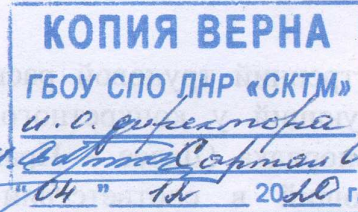 КОПИЯ ВЕРНА
ГБОУ СПО ЛНР «СКТМ»
и.о. директора
"04" 12 2020 г